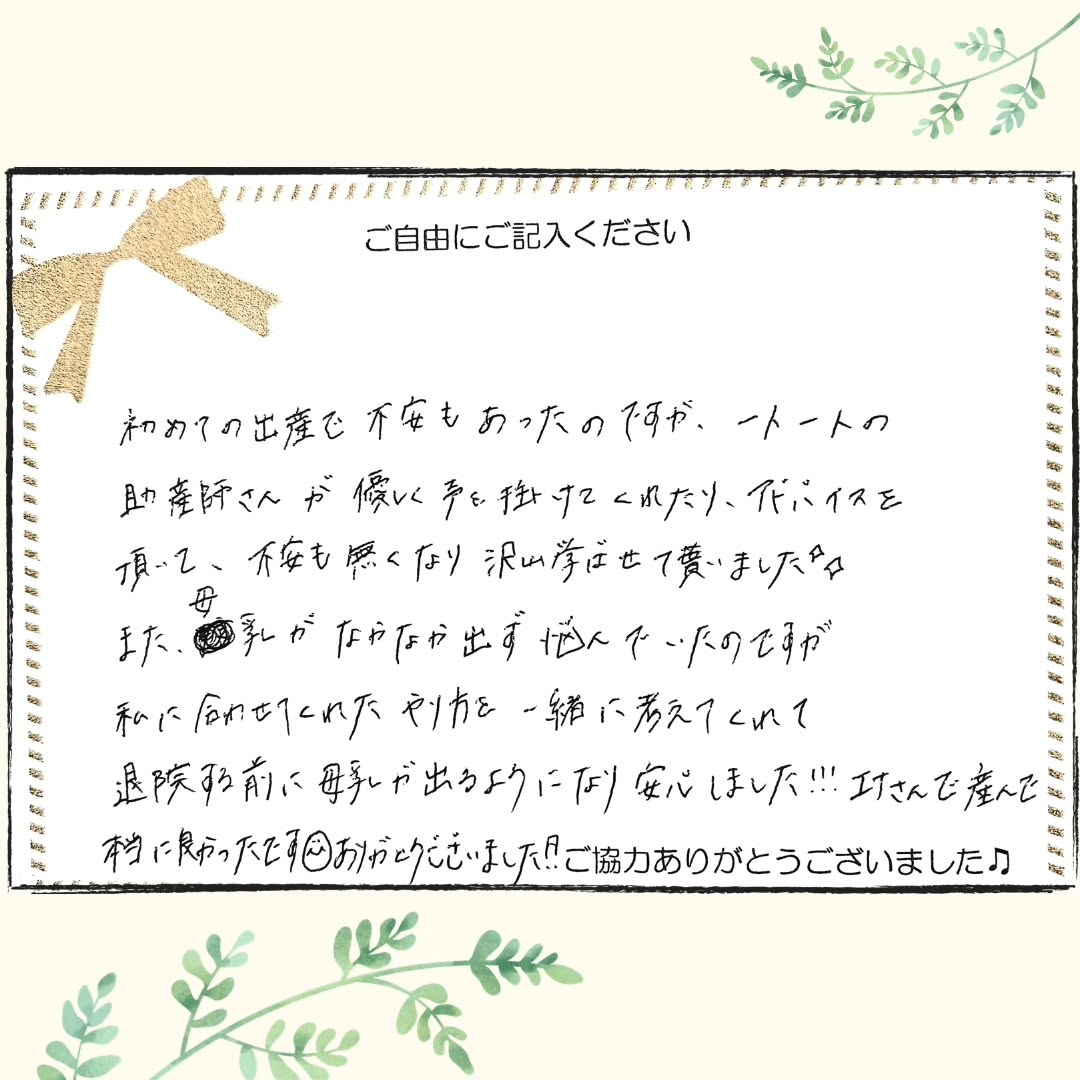 ご自由にご記入ください
初めての出産で不安もあったのですが、一人一人の
助産師さんが優しく声を掛けてくれたり、アドバイスを
頂いて、不安も無くなり沢山学ばせて貰いました
また、母乳がなかなか出ず悩んでいたのですが
私に合わせてくれたやり方を一緒に考えてくれて
退院する前に母乳が出るようになり安心しました!!! エナさんで産んで
本当に良かったです ありがとうございました!!
ご協力ありがとうございました♫